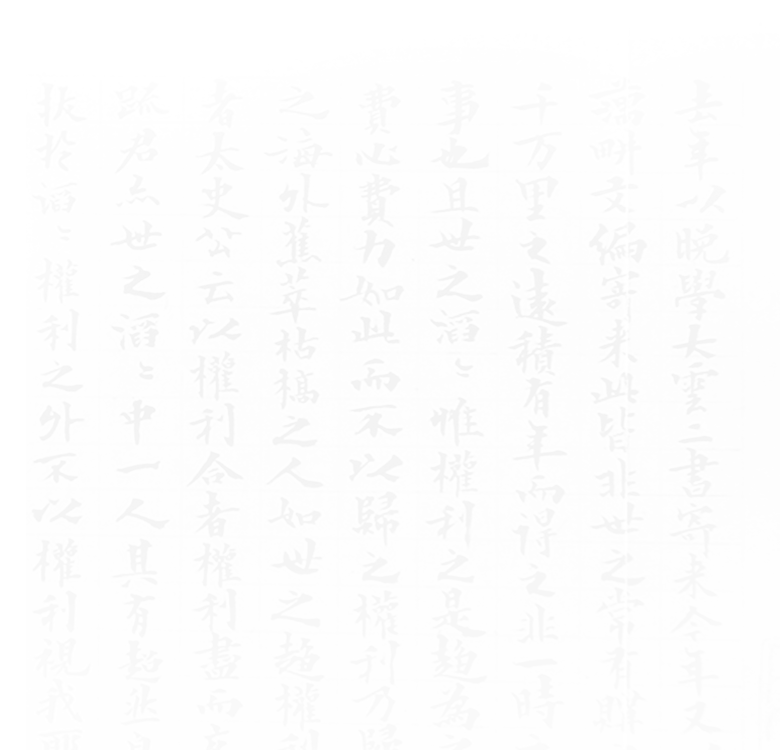 去年以晚學大雲二書寄來今年又
藕畊文編寄來此皆非世之常有購
千万里之遠積有年而得之非一時
事也且世之滔〻惟權利之是趨爲之
費心費力如此而不以歸之權利乃歸
之海外蕉萃枯槁之人如世之趨權利
者太史公云以權利合者權利盡而交
踈君亦世之滔〻中一人其有超然自
拔於滔〻權利之外不以權利視我耶